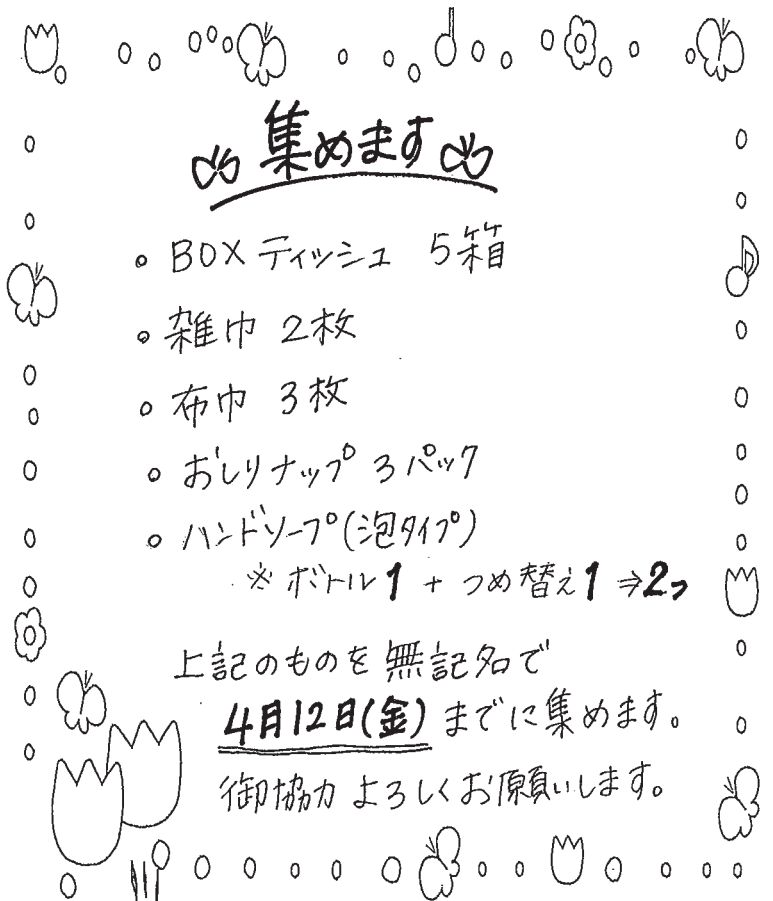 集めます
。BOXティッシュ 5箱
。雑巾 2枚
。布巾 3枚
。おしりナップ 3パック
。ハンドソープ(泡タイプ)
※ ボトル1 + つめ替え1 ⇒2つ
上記のものを無記名で
4月12日(金)までに集めます。
御協力よろしくお願いします。